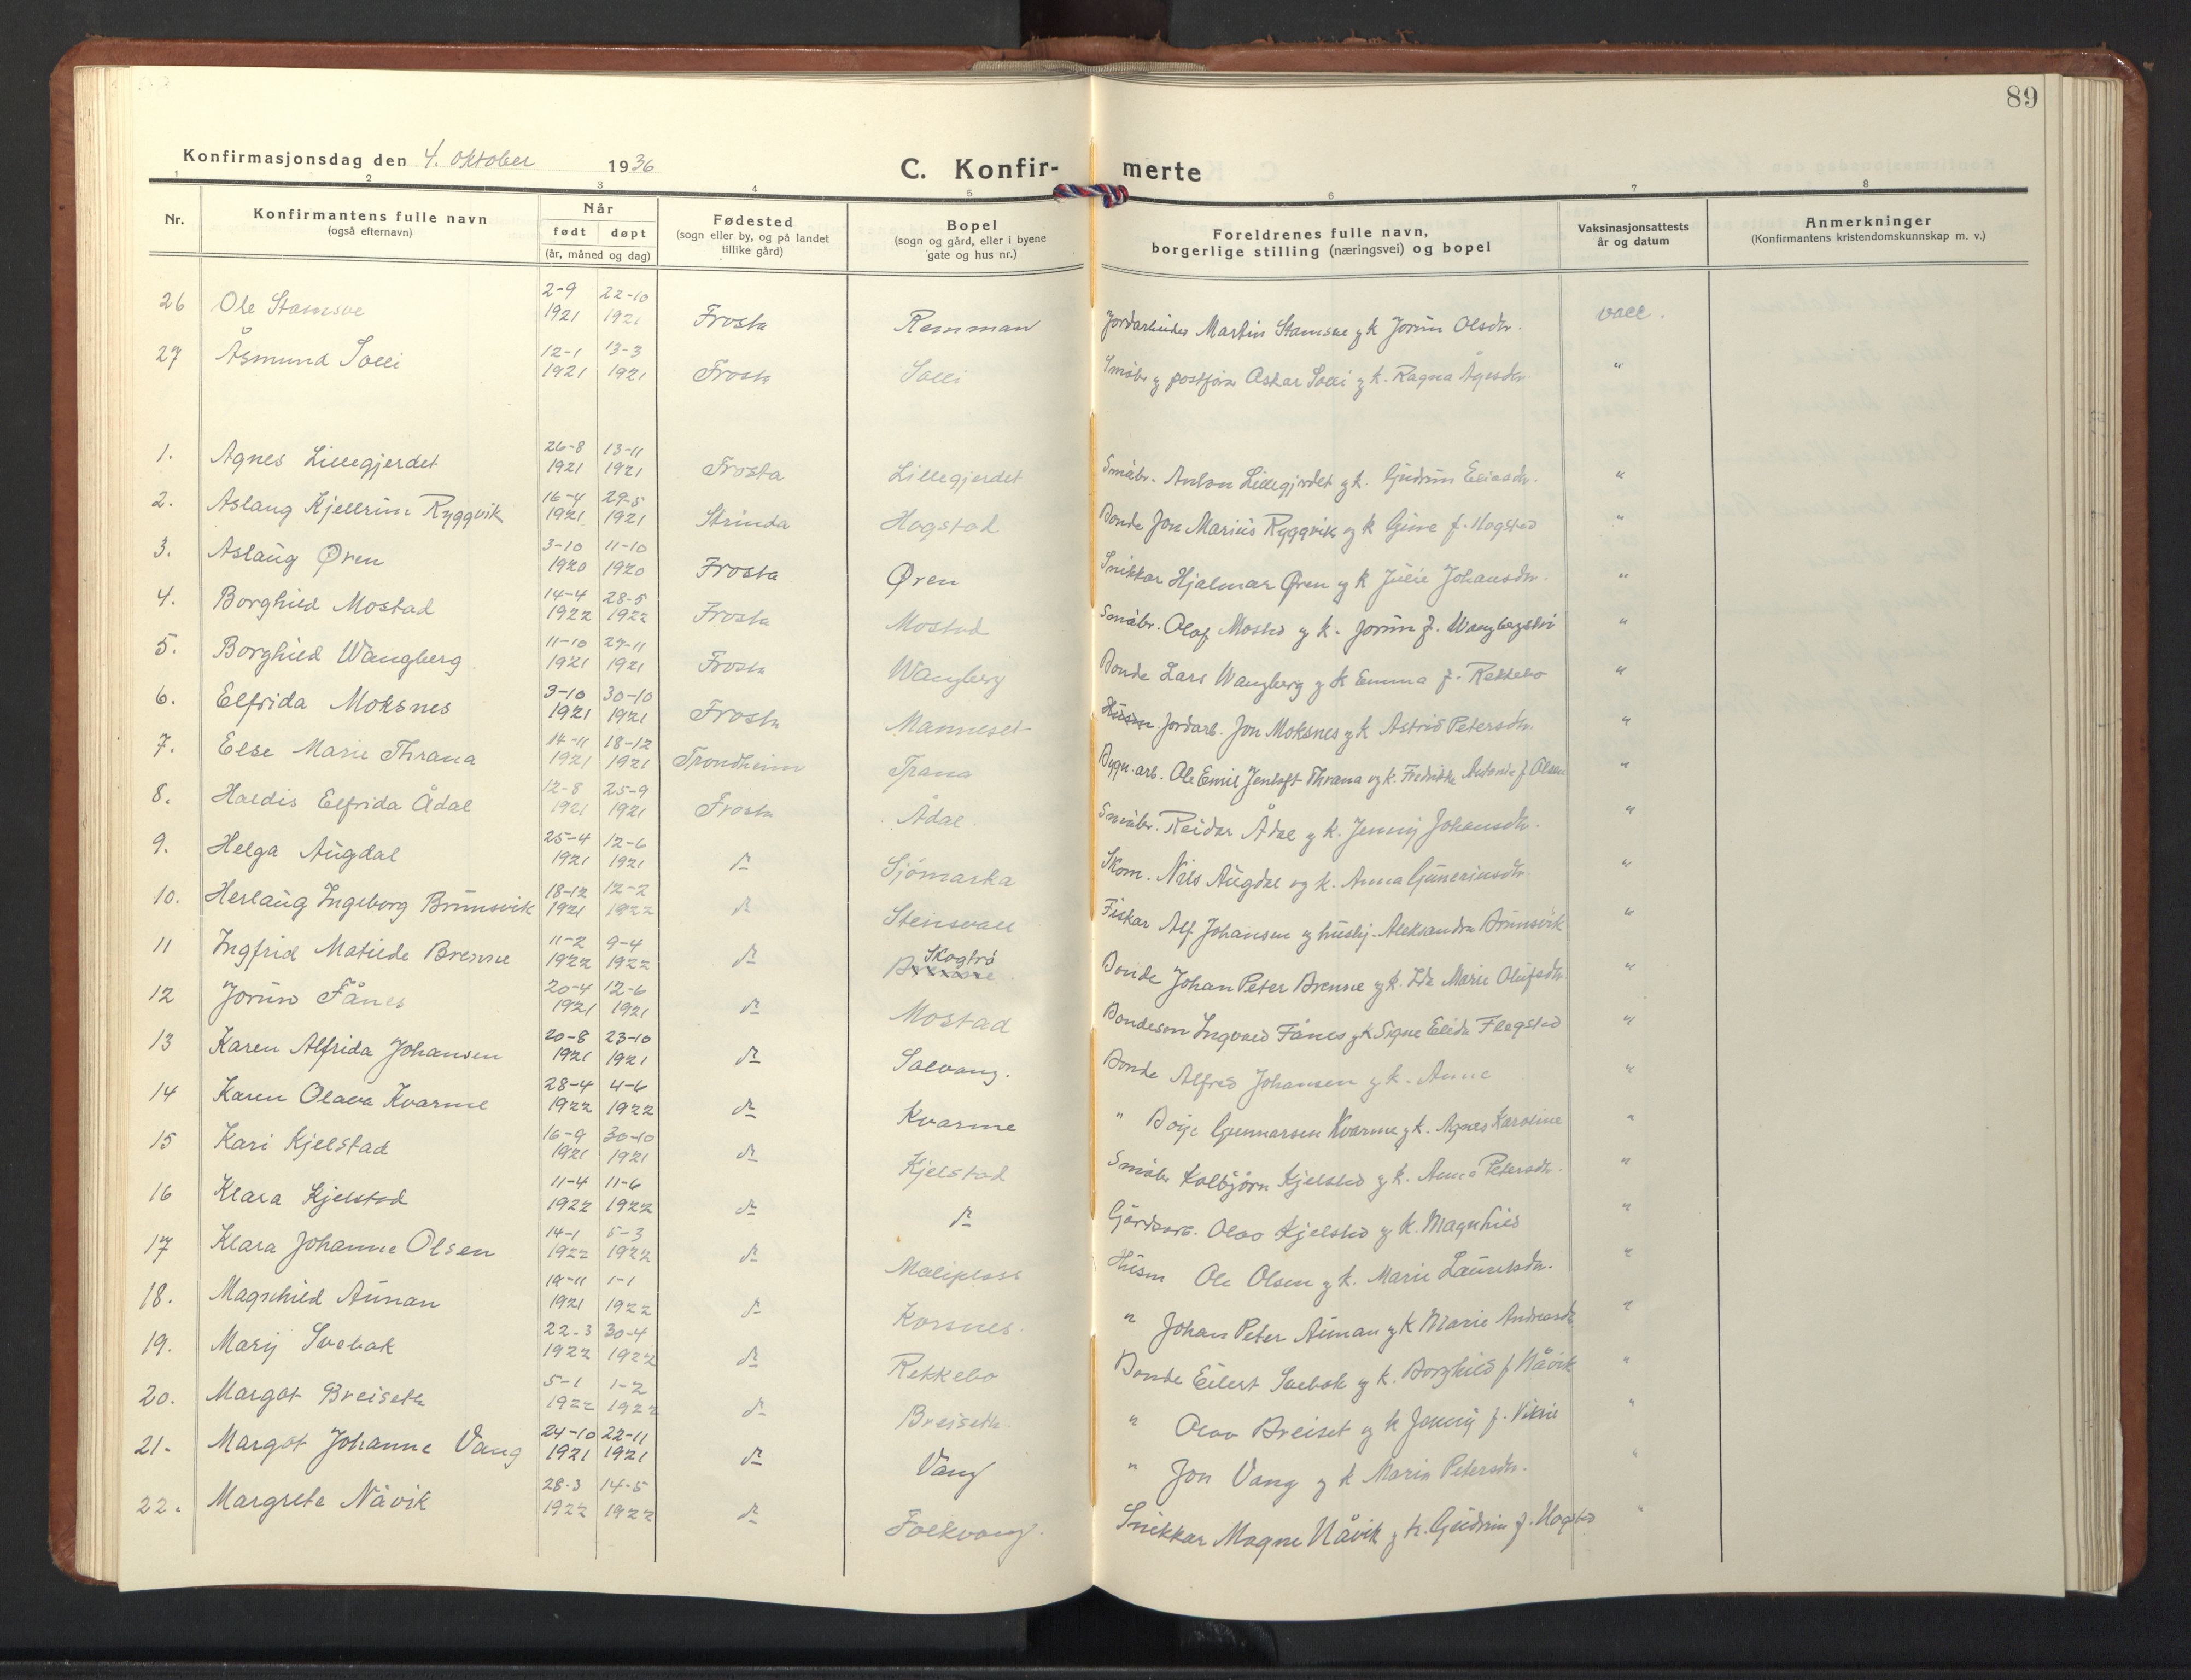 89
Konfirmasjonsdag den 4. oktober 1936
C. Konfir- merte
1 2 3 4 5 6 7 8
Nr.
Konfirmantens fulle navn
(også efternavn)
Når
født døpt
(år, måned og dag)
Fødested
(sogn eller by, og på landet
tillike gård)
Bopel
(sogn og gård, eller i byene
gate og hus nr.)
Foreldrenes fulle navn,
borgerlige stilling (næringsvei) og bopel
Vaksinasjonsattests
år og datum
Anmerkninger
(Konfirmantens kristendomskunnskap m. v.)
26 Ole Stamsve 2-9 1921 22-10 1921 Frosta Remman Jordarbeider Martin Stamsve og k Jorun Olsdtr. vacc.
27 Åsmund Solli 12-1 1921 13-3 1921 Frosta Solli Småbr og postfører Oskar Solli og k. Ragna Ågesdtr "
1. Agnes Lillegjerdet 26-8 1921 13-11 1921 Frosta Lillegjerdet Småbr. Anton Lillegjerdet og k. Gudrun Eliasdtr. "
2. Aslaug Kjellrun Ryggvik 16-4 1921 29-5 1921 Strinda Hogstad Bonde Jon Marius Ryggvik og k Gine f. Hogstad "
3. Aslaug Øren 3-10 1920 11-10 1920 Frosta Øren Snikkar Hjalmar Øren og k Julie Johansdtr. "
4. Borghild Mostad 14-4 1922 28-5 1922 Frosta Mostad Småbr. Olaf Mostad og k. Jorun f. Wangbergsvei "
5. Borghild Wangberg 11-10 1921 27-11 1921 Frosta Wangberg Bonde Lars Wangberg og k Emma f. Rekkebo "
6. Elfrida Moksnes 3-10 1921 30-10 1921 Frosta Manneset Husm. Jordarb. Jon Moksnes og k Astrid Petersdtr. "
7. Else Marie Thrana 14-11 1921 18-12 1921 Trondheim Trana Bygn.arb. Ole Emil Jentoft Thrana og k. Fredrikke Antonie f Olsen "
8. Haldis Elfrida Ådal 12-8 1921 25-9 1921 Frosta Ådal. Småbr. Reidar Ådal og k. Jenny Johansdtr. "
9. Helga Augdal 25-4 1921 12-6 1921 do Sjømarka Skom. Nils Augdal og k. Anna Guneriusdtr. "
10. Herlaug Ingeborg Brunsvik 18-12 1921 12-2 1922 do Steinsvall Fiskar Alf Johansen og hushj. Aleksandra Brunsvik "
11 Ingfrid Matilde Brenne 11-2 1922 9-4 1922 do Skogtrø Brenne Bonde Johan Peter Brenne og k. Ida Marie Olufsdtr "
12 Jorun Fånes 20-4 1921 12-6 1921 do Mostad Bondeson Ingvald Fånes og k Signe Elida Flagstad "
13 Karen Alfrida Johansen 20-8 1921 23-10 1921 do Salvang. Bonde Alfred Johansen og k. Anne "
14 Karen Olava Kvarme 28-4 1922 4-6 1922 do Kvarme " Børje Gunnarsen Kvarme og k. Agnes Karoline "
15 Kari Kjelstad 16-9 1921 30-10 1921 do Kjelstad Småbr Kolbjørn Kjelstad og k. Anna Petersdtr. "
16 Klara Kjelstad 11-4 1922 11-6 1922 do do Gårdsarb. Olav Kjelstad og k. Magnhild "
17 Klara Johanne Olsen 14-1 1922 5-3 1922 do Moliplass Husm Ole Olsen og k. Marie Lauritsdtr. "
18. Magnhild Aunan 19-11 1921 1-1 1922 do Korsnes. " Johan Peter Aunan og k Marie Andreasdtr "
19. Mary Svebak 22-3 1922 30-4 1922 do Rekkebo Bonde Eilert Svebak og k. Borghild f Nåvik "
20. Margot Breiseth 5-1 1922 1-2 1922 do Breiseth. " Olav Breiset og k Jenny f. Viktil "
21. Margot Johanne Vang 24-10 1921 22-11 1921 do Vang " Jon Vang og k Marie Petersdtr. "
22. Margrete Nåvik 28-3 1922 14-5 1922 do Folkvang. Snikkar Magne Nåvik og k. Gudrun f. Hogstad "